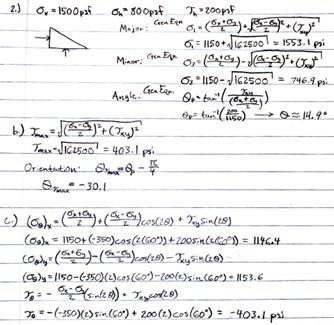 2.) σᵥ = 1500psf σₕ = 800psf τₕ = 200psf
Major: Gen Eqn σ₁ = (σₓ+σᵧ/2) + √((σₓ-σᵧ/2)² + (τₓᵧ)²)
σ₁ = 1150 + √162500 = 1553.1 psf
Minor: Gen Eqn σ₂ = (σₓ+σᵧ/2) - √((σₓ-σᵧ/2)² + (τₓᵧ)²)
σ₂ = 1150 - √162500 = 746.9 psf
Angle: Gen Eqn θₚ = tan⁻¹(τₓᵧ/(σₓ+σᵧ/2))
θₚ = tan⁻¹(200/1150) → θ ≈ 14.9°
b.) τmax = √((σₓ-σᵧ/2)² + (τₓᵧ)²)
τmax = √162500 = 403.1 psf
Orientation: θτmax = θₚ - π/4
θτmax = -30.1
c.) (σθ)x = (σₓ+σᵧ/2) + (σₓ-σᵧ/2)cos(2θ) + τₓᵧsin(2θ)
(σθ)x = 1150 + (-350)cos(2(60°)) + 200sin(2(60°)) = 1146.4
(σθ)y = (σₓ+σᵧ/2) - (σₓ-σᵧ/2)cos(2θ) - τₓᵧsin(2θ)
(σθ)y = 1150 - (-350)(2)cos(60°) - 200(2)sin(60°) = 1153.6
τθ = - σₓ-σᵧ/2 (sin(2θ)) + τₓᵧcos(2θ)
τθ = -(-350)(2)sin(60°) + 200(2)cos(60°) = -403.1 psf